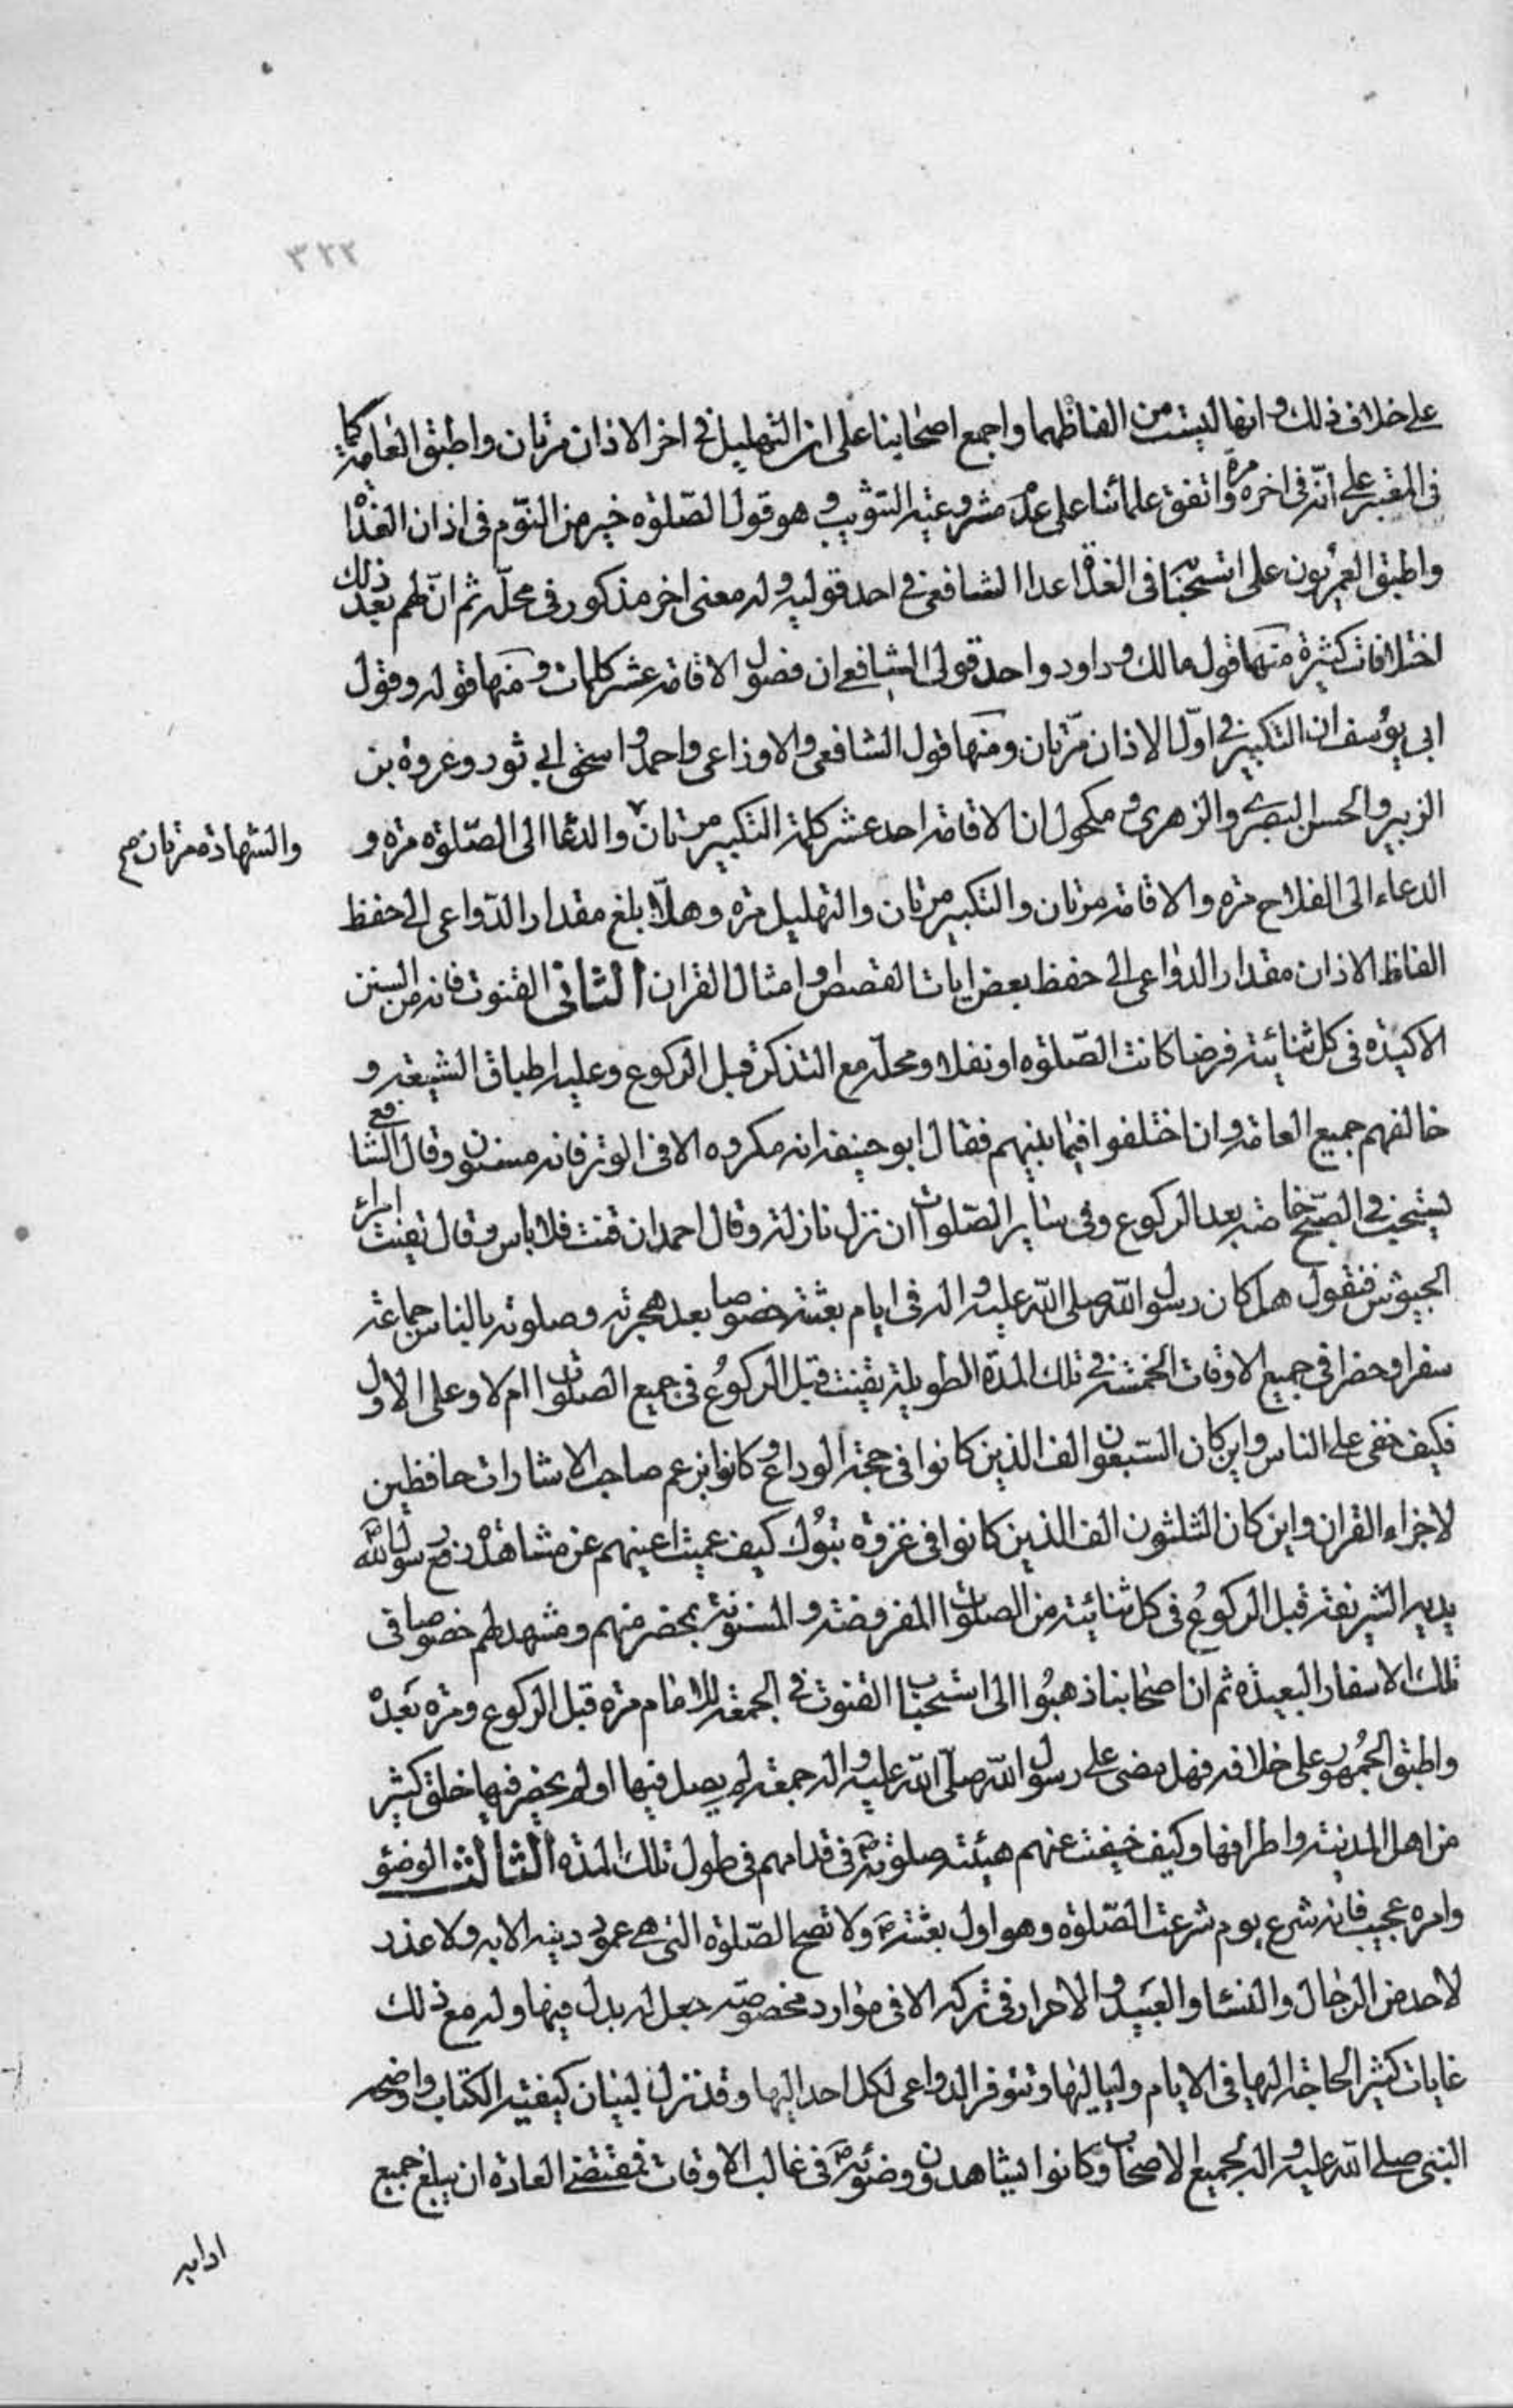 ٣٢٢
على خلاف ذلك وانها ليست من الفاظهما واجمع اصحابنا على ان التهليل في اخر الاذان مرتان واطبق العامة كما
في المعتبر على انه في اخره مرة واتفق علمائنا على عدم مشروعية التثويب وهو قول الصلوة خير من النوم في اذان الغداة
واطبق العمريون على استحبابها في الغداة عدا الشافعي في احد قوليه وله معنى اخر مذكور في محله ثم ان لهم بعد ذلك
اختلافات كثيرة منها قول مالك وداود واحد قولي الشافعي ان فصول الاقامة عشر كلمات ومنها قوله وقول
ابي يوسف ان التكبير في اول الاذان مرتان ومنها قول الشافعي والاوزاعي واحمد واسحق ابي ثور وعروة بن
الزبير والحسن البصري والزهري ومكحول ان الاقامة احد عشر كلمة التكبير مرتان والدعا الى الصلوة مرة و
والشهادة مرتان صح
الدعاء الى الفلاح مرة والاقامة مرتان والتكبير مرتان والتهليل مرة وهلا بلغ مقدار الدواعي الى حفظ
الفاظ الاذان مقدار الدواعي الى حفظ بعض ايات القصص وامثال القران الثاني القنوت فانه من السنن
الاكيدة في كل ثنائية فرضا كانت الصلوة او نفلا ومحله مع التذكر قبل الركوع وعليه اطباق الشيعة و
خالفهم جميع العامة وان اختلفوا فيما بينهم فقال ابو حنيفة انه مكروه الا في الوتر فانه مسنون وقال الشافعي
يستحب في الصبح خاصة بعد الركوع وفي ساير الصلوات ان نزل نازلة وقال احمد ان قنت فلا باس وقال تقنت امراء
الجيوش فنقول هل كان رسول الله صلى الله عليه واله في ايام بعثته خصوصا بعد هجرته وصلوته بالناس جماعة
سفرا وحضرا في جميع الاوقات الخمسة في تلك المدة الطويلة يقنت قبل الركوع في جميع الصلوات ام لا وعلى الاول
فكيف خفي على الناس واين كان السبعون الف الذين كانوا في حجة الوداع وكانوا بزعم صاحب الاشارات حافظين
لاجزاء القران واين كان الثلثون الف الذين كانوا في غزوة تبوك كيف عميت اعينهم عن مشاهدة رفع رسول الله
يديه الشريفة قبل الركوع في كل ثنائية من الصلوات المفروضة والمسنونة بمحضر منهم ومشهد لهم خصوصا في
تلك الاسفار البعيدة ثم ان اصحابنا ذهبوا الى استحباب القنوت في الجمعة للامام مرة قبل الركوع ومرة بعده
واطبق الجمهور على خلافه فهل مضى على رسول الله صلى الله عليه واله جمعة لم يصل فيها او لم يحضر فيها خلق كثير
من اهل المدينة واطرافها وكيف خفيت عنهم هيئة صلوته ص في قدامهم في طول تلك المدة الثالث الوضؤ
وامره عجيب فانه شرع يوم شرعت الصلوة وهو اول بعثته ص ولا تصح الصلوة التي هي عمود دينه الا به ولا عذر
لاحد من الرجال والنساء والعبيد والاحرار في تركه الا في موارد مخصوصة جعل له بدل فيها وله مع ذلك
غايات كثير الحاجة اليها في الايام ولياليها وتتوفر الدواعي لكل احد اليها وقد نزل لبيان كيفيته الكتاب واوضحه
النبي صلى الله عليه واله لجميع الاصحاب وكانوا يشاهدون وضوئه ص في غالب الاوقات فمقتضى العادة ان يبلغ جميع
ادابه